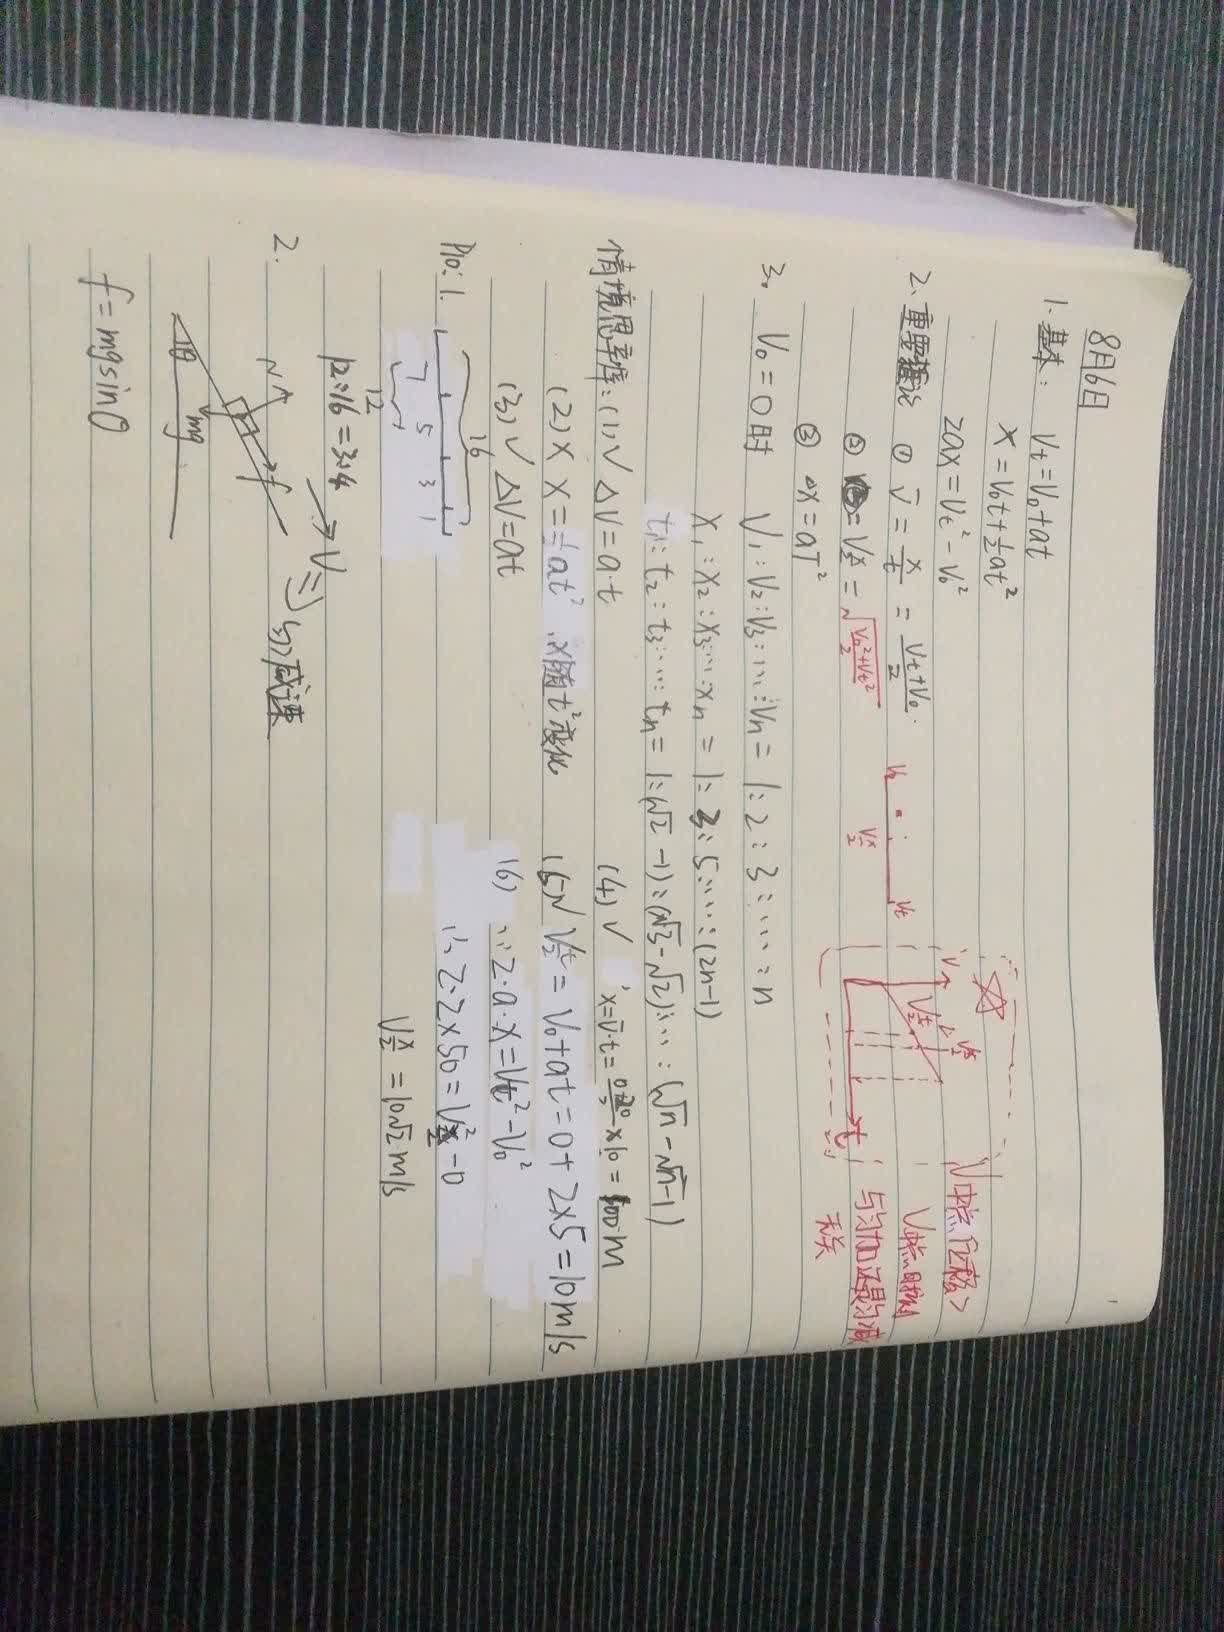 8月6日
1.基本: Vt=V0+at
x=V0t+½at²
2ax=Vt²-V0²
2.重要推论 ① v̄=x/t=(Vt+V0)/2.
② =Vx/2=√((V0²+Vt²)/2)
③ △x=aT²
V0 Vx/2 Vt
V Vt/2 Vx/2 t
V中点位移>
V中点时刻
与匀加还是匀减
无关
3. V0=0时 V1:V2:V3:…:Vn=1:2:3:…:n
x1:x2:x3:…:xn=1:3:5:…:(2n-1)
t1:t2:t3:…:tn=1:(√2-1):(√3-√2):…:(√n-√n-1)
情境思辨:(1)√ △V=a·t (4)√ x=v̄·t=(0+20)/2×10=100m
(2)× x=½at² ∴x随t²变化 (5)√ Vt/2=V0+at=0+2×5=10m/s
(3)√ △V=at (6) ∵2·a·x=Vt²-V0²
P10:1. 16 7 5 3 1 12 ∴2·2×50=Vx/2²-0
12:16=3:4 Vx/2=10√2m/s
2. N f V mg θ ⇒匀减速
f=mgsinθ